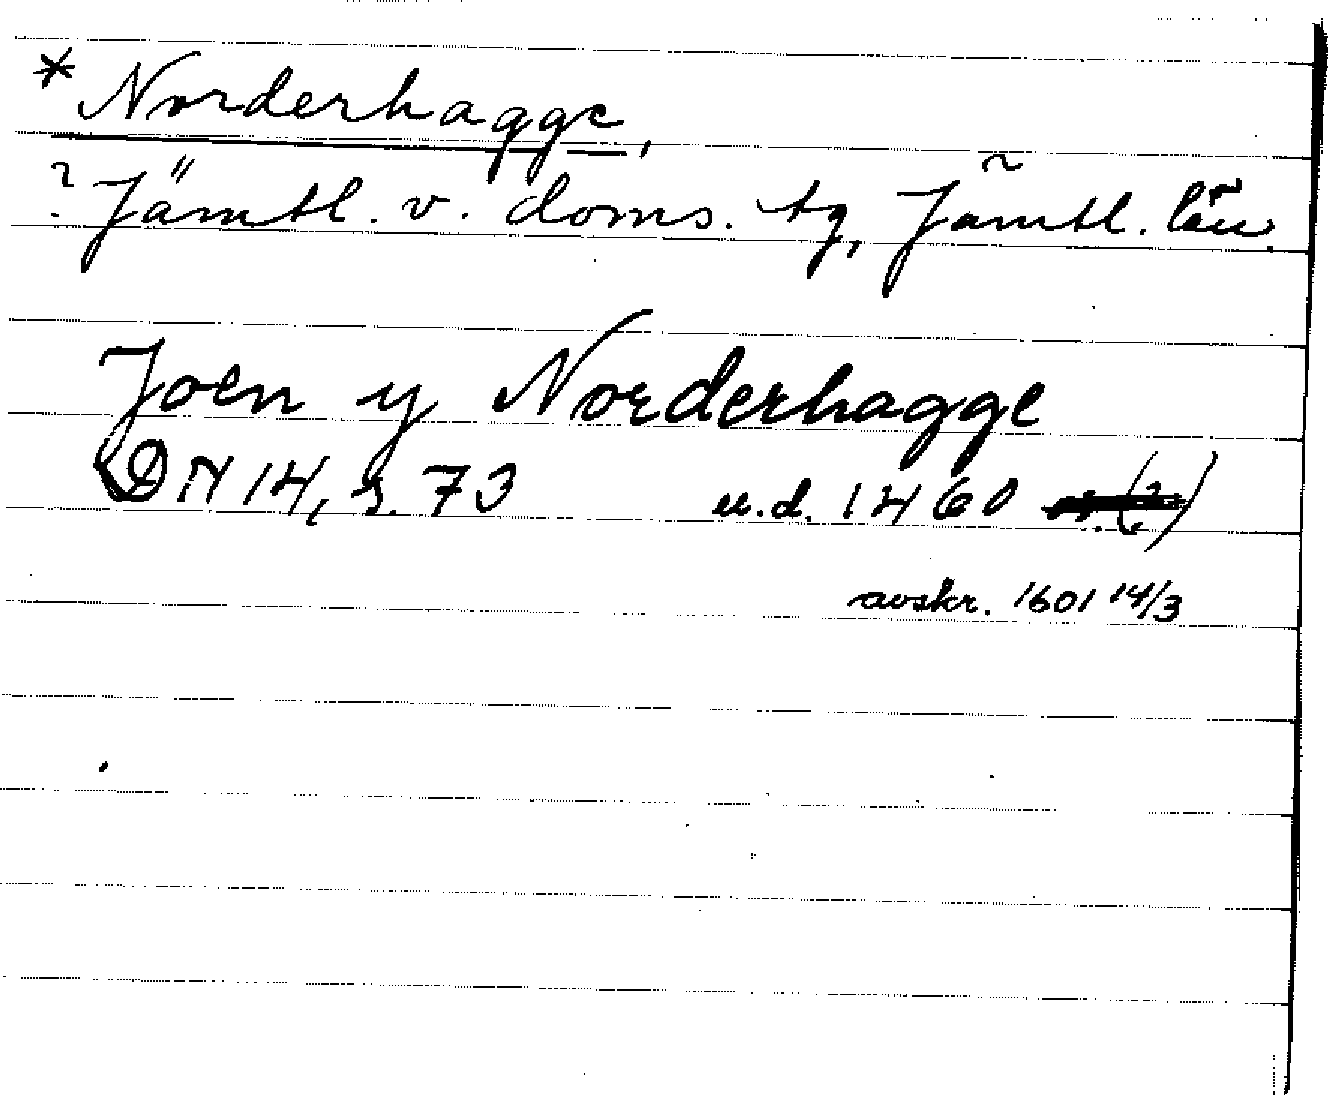 * Norderhagge,
? Jämtl. v. doms. tg, Jämtl. län.
Joen y Norderhagge
DN 14, s. 73 u.d. 1460
avskr. 1601 14/3